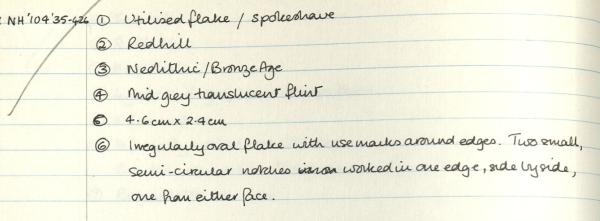 NH'104'35-426 ① Utilised flake / spokeshave
② Redhill
③ Neolithic/Bronze Age
④ Mid grey translucent flint
⑤ 4.6cm x 2.4cm
⑥ Irregularly oval flake with use marks around edges. Two small,
semi-circular notches worked in one edge, side by side,
one from either face.